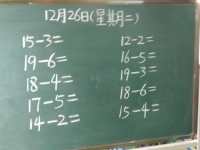 12月26日(星期二)
15-3=
19-6=
18-4=
17-5=
14-2=
12-2=
16-5=
19-3=
18-6=
15-4=